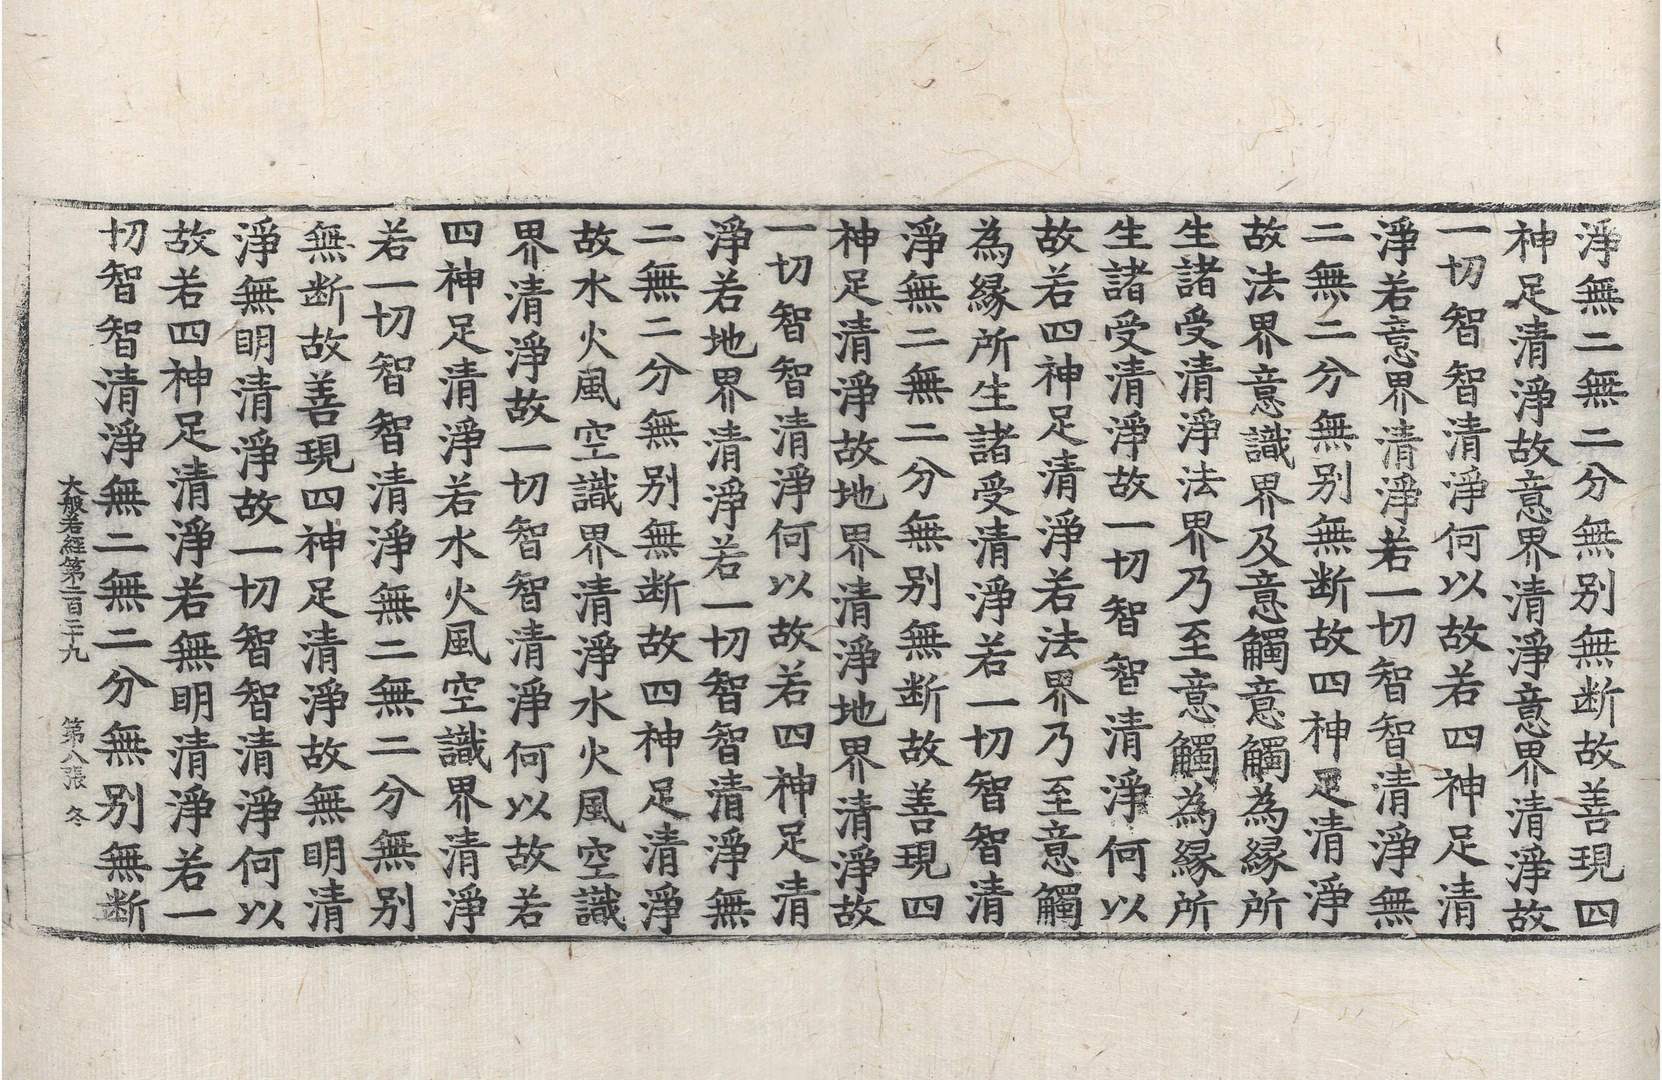 淨無二無二分無别無断故善現四
神足清淨故意界清淨意界清淨故
一切智智清淨何以故若四神足清
淨若意界清淨若一切智智清淨無
二無二分無别無断故四神足清淨
故法界意識界及意觸意觸為緣所
生諸受清淨法界乃至意觸為緣所
生諸受清淨故一切智智清淨何以
故若四神足清淨若法界乃至意觸
為緣所生諸受清淨若一切智智清
淨無二無二分無别無断故善現四
神足清淨故地界清淨地界清淨故
一切智智清淨何以故若四神足清
淨若地界清淨若一切智智清淨無
二無二分無别無断故四神足清淨
故水火風空識界清淨水火風空識
界清淨故一切智智清淨何以故若
四神足清淨若水火風空識界清淨
若一切智智清淨無二無二分無别
無断故善現四神足清淨故無明清
淨無明清淨故一切智智清淨何以
故若四神足清淨若無明清淨若一
切智智清淨無二無二分無别無断
大般若経第二百三十九 第八張 冬